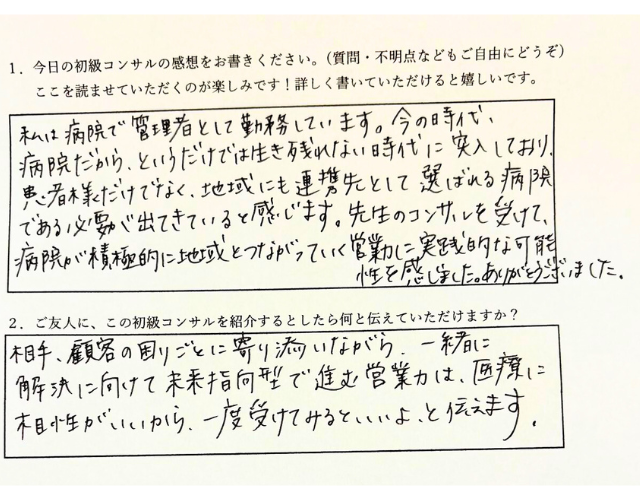 1．今日の初級コンサルの感想をお書きください。（質問・不明点などもご自由にどうぞ）
ここを読ませていただくのが楽しみです！詳しく書いていただけると嬉しいです。
私は病院で管理者として勤務しています。今の時代、
病院だから、というだけでは生き残れない時代に突入しており、
患者様だけでなく、地域にも連携先として選ばれる病院
である必要が出てきていると感じます。先生のコンサルを受けて、
病院が積極的に地域とつながっていく営業に実践的な可能
性を感じました。ありがとうございました。
2．ご友人に、この初級コンサルを紹介するとしたら何と伝えていただけますか？
相手、顧客の困りごとに寄り添いながら、一緒に
解決に向けて未来指向型で進む営業力は、医療に
相性がいいから、一度受けてみるといいよ、と伝えます。